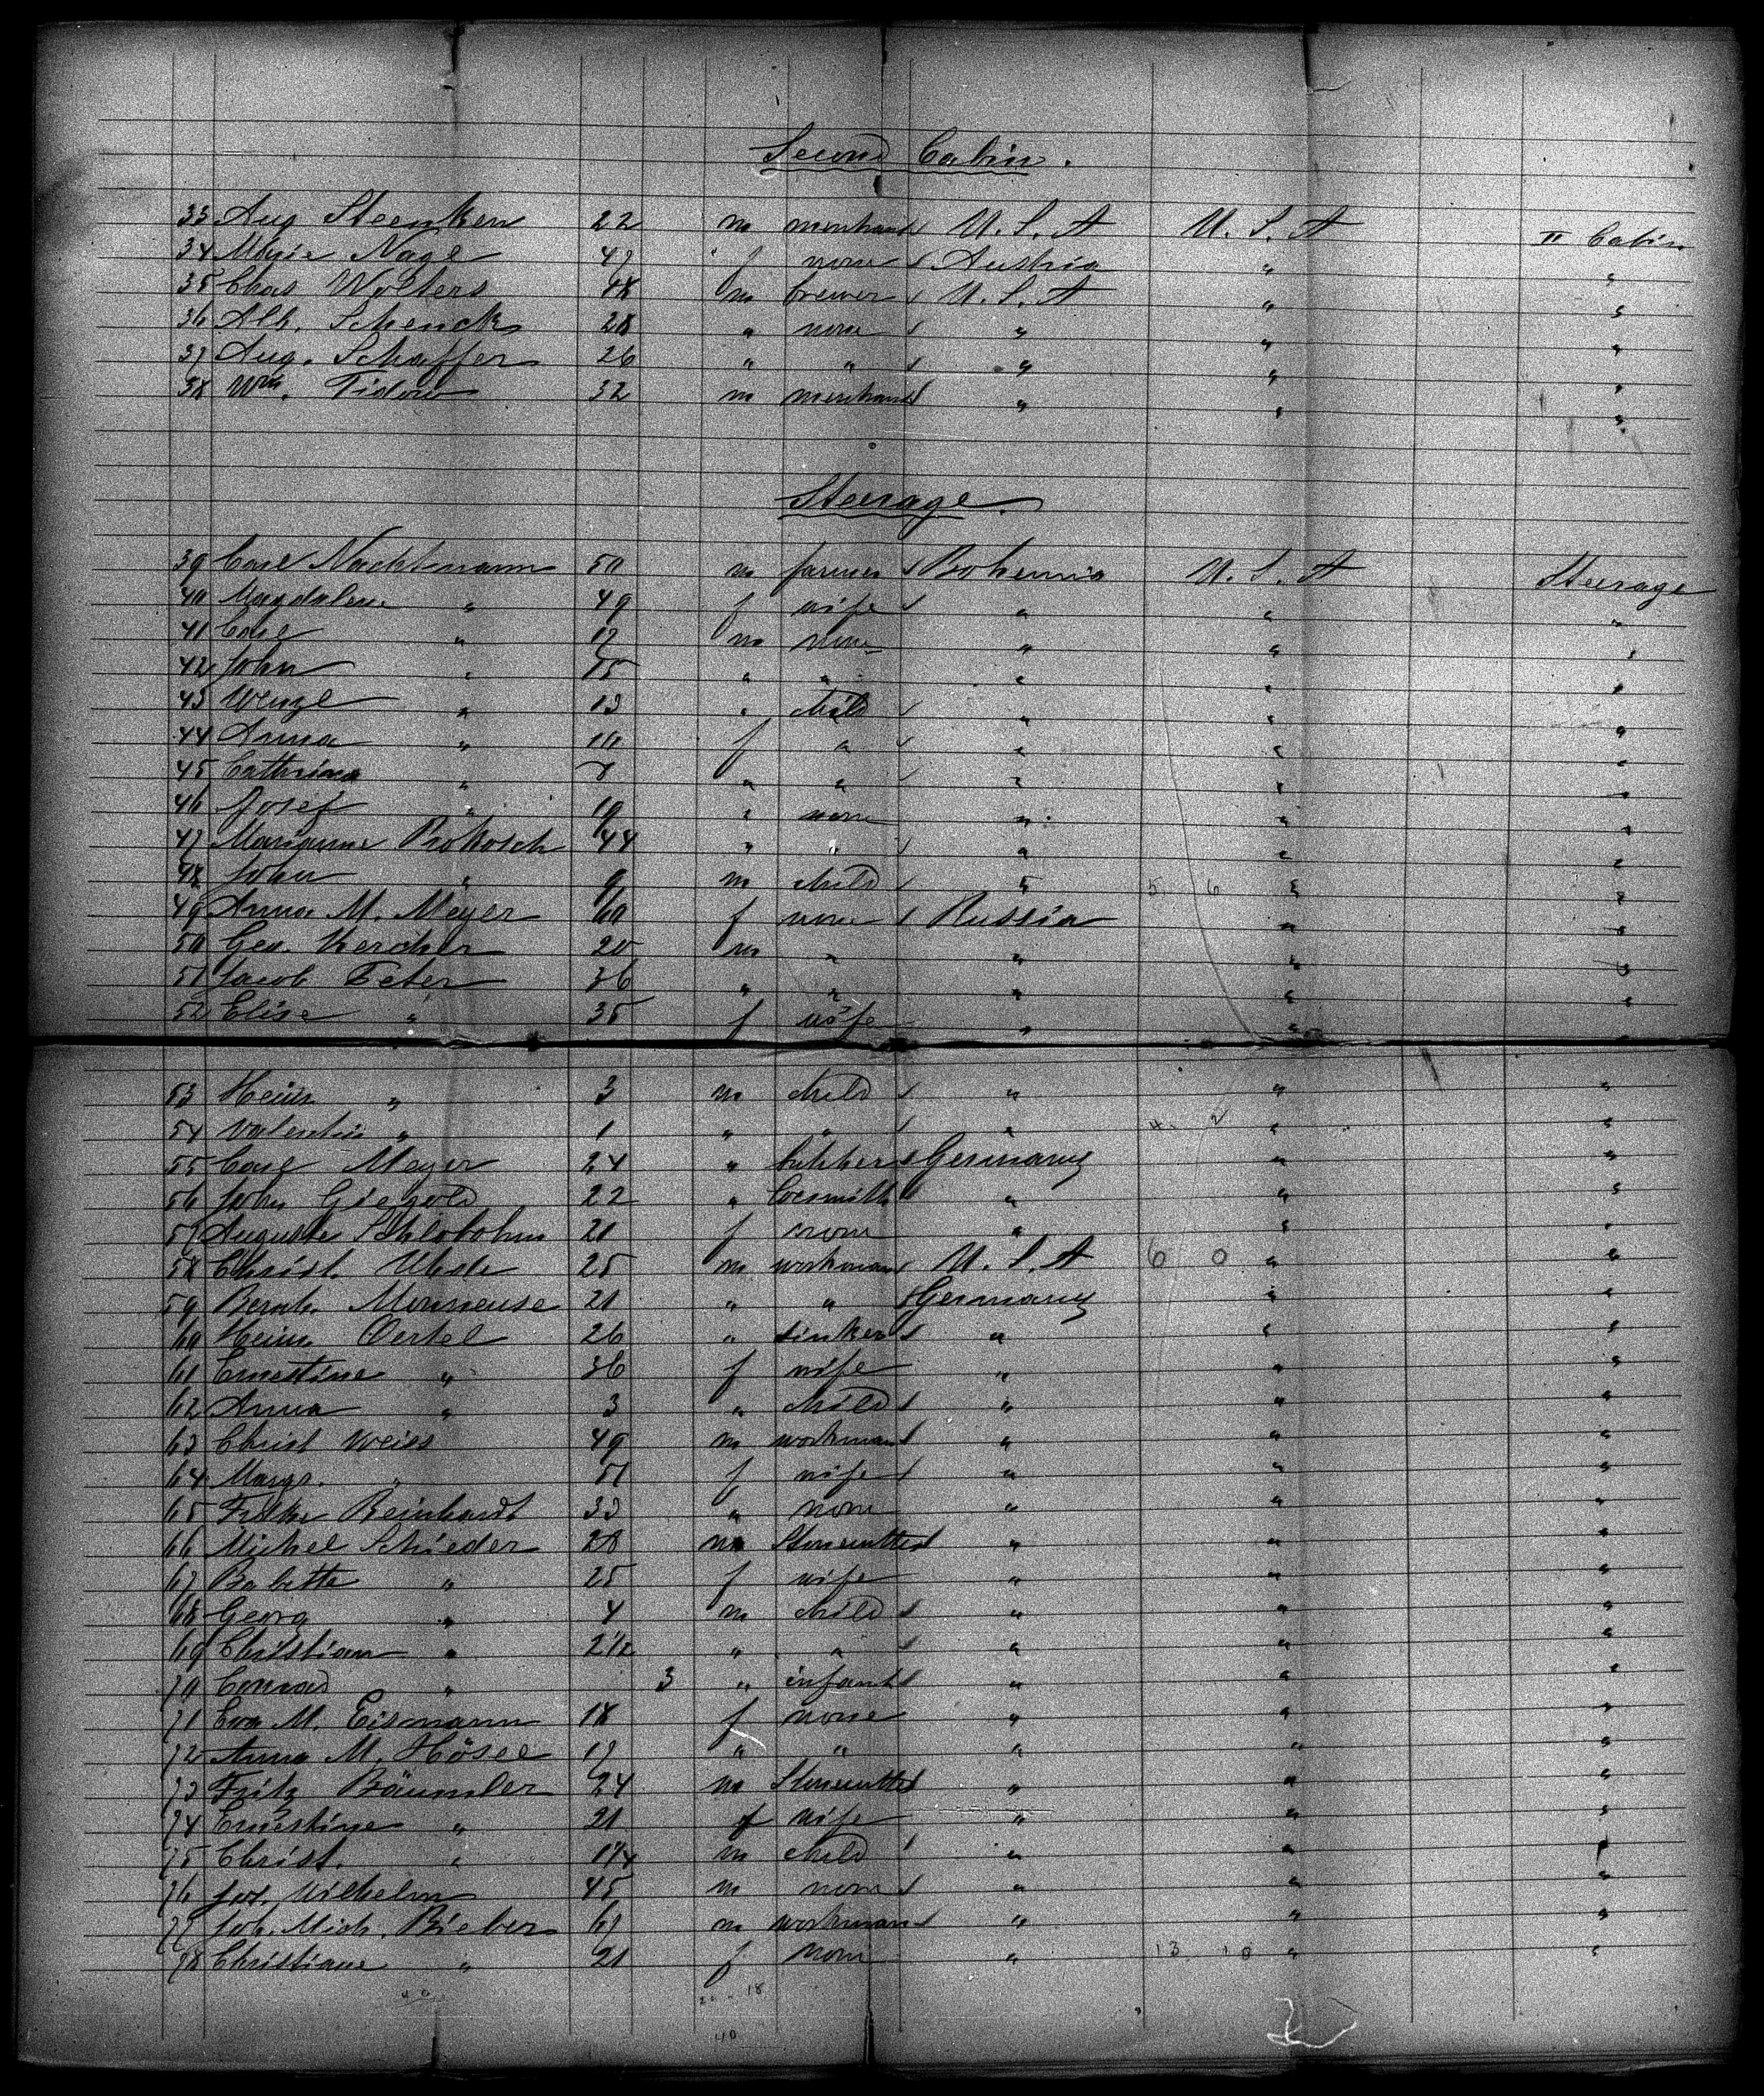 Second Cabin.
33 Aug Steenken 22 m merchant U. S. A U. S. A II Cabin
34 Marie Nagl 47 f none Austria " "
35 Chas Wolters 48 m brewer U. S. A " "
36 Alb. Schenck 28 " none " " "
37 Aug. Schaffer 26 " " " " "
38 Wm. Tidow 32 m merchant " " "
Steerage.
39 Carl Nachtmann 50 m farmer Bohemia U. S. A Steerage
40 Magdalena " 49 f wife " " "
41 Carl " 17 m none " " "
42 John " 15 " " " " "
43 Wenzl " 13 " child " " "
44 Anna " 10 f " " " "
45 Cathrina " 8 " " " " "
46 Josef " 19 " none " " "
47 Marianne Prokosch 44 " " " " "
48 John " 9 m child " 5 6 " "
49 Anna M. Meyer 60 f none Russia " "
50 Geo. Kercher 20 m " " " "
51 Jacob Feter 36 " " " " "
52 Elise " 35 f wife " " "
53 Heinr " 3 m child " " "
54 Valentin " 1 " " " 4 2 " "
55 Carl Meyer 24 " butcher Germany " "
56 John Giegold 22 " locsmith " " "
57 Auguste Schlobohm 21 f none " " "
58 Christ. Uhde 25 m workman U. S. A 6 0 " "
59 Bernh. Monneuse 21 " " Germany " "
60 Heinr. Oertel 26 " tinker " " "
61 Ernestine " 36 f wife " " "
62 Anna " 3 " child " " "
63 Christ Weiss 49 m workman " " "
64 Margr. " 51 f wife " " "
65 Reinhardt 33 " none " " "
66 Michel Schieder 28 m Stonecutter " " "
67 Babette " 25 f wife " " "
68 Georg " 4 m child " " "
69 Christian " 2 1/2 " " " " "
70 Conrad " 3 " infant " " "
71 Eva M. Eismann 18 f none " " "
72 Anna M. Hösel 17 " " " " "
73 Fritz Bäumler 24 m Stonecutter " " "
74 Ernestine " 21 f wife " " "
75 Christ. " 1 1/4 m child " " "
76 Joh. Wilhelm 45 m none " " "
77 Joh. Mich. Bieber 67 m workman " " "
78 Christiane " 21 f none " 13 10 " "
18
40